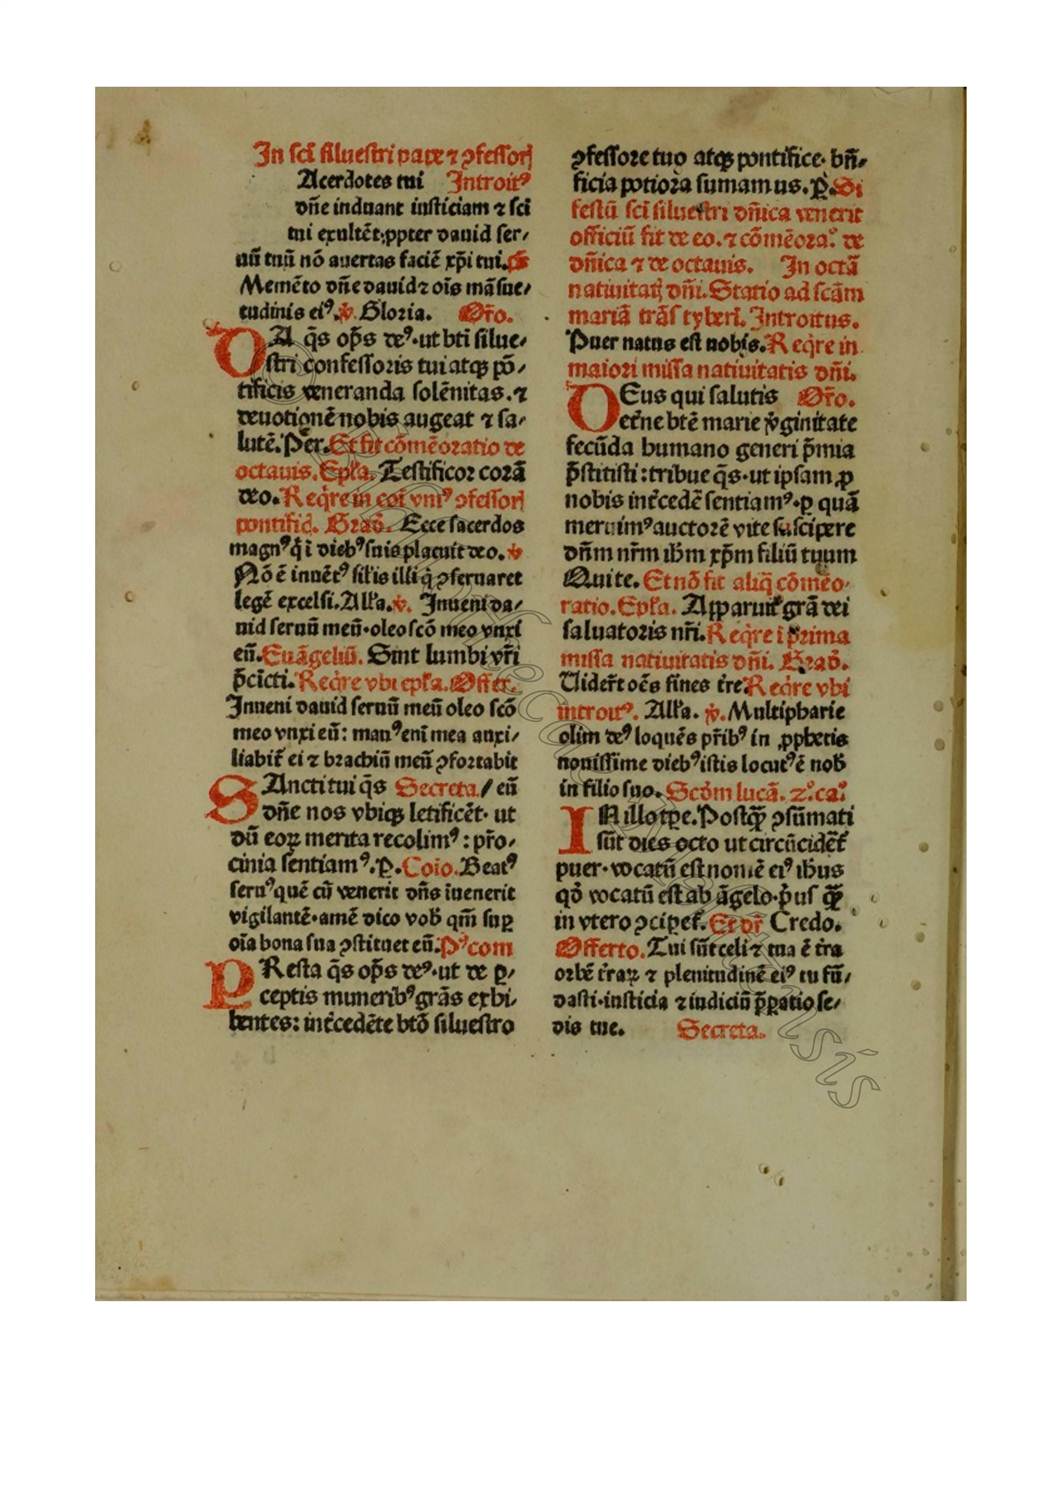 In sci̅ siluestri pape ⁊ ꝯfessorꝭ
Acerdotes tui Introitꝰ
dn̅e induant iusticiam ⁊ sci̅
tui exultēt: ꝓpter dauid ser⸗
uū tuū nō auertas faciē xp̅i tui. ps̅
Memēto dn̅e dauid ⁊ oi̅s māsue⸗
tudinis eiꝰ. ℣. Gloria. Or̅o.
DA q̅s op̅s deꝰ· ut bt̅i silue⸗
stri confessoris tui atqꝫ pō⸗
tificis veneranda solēnitas. ⁊
deuotionē nobis augeat ⁊ sa⸗
lutē. Per. Et fit cōmēoratio de
octauis. Epl̅a. Testificor corā
deo. Reqͥre in coi̅ vniꝰ ꝯfessorꝭ
pontificꝭ. Grad̅. Ecce sacerdos
magnꝰ qͥ i̅ diebꝰ suis placuit deo. ℣
Nō ē inuētꝰ sil̅is illi qͥ ꝯseruaret
legē excelsi. All̅a. ℣. Inueni da⸗
uid seruū meū· oleo scō meo vnxi
eū. Euāgeliū. Sint lumbi vr̅i
p̅cīcti. Reqͥre vbi epl̅a. Offer.
Inueni dauid seruū meū oleo scō
meo vnxi eū: manꝰ eni̅ mea auxi⸗
liabit̅ ei ⁊ brachiū meū ꝯfortabit
SAncti tui q̅s Secreta. / eū
dn̅e nos vbiqꝫ letificēt· ut
dū eoꝝ merita recolimꝰ: pr̅o⸗
cinia sentiamꝰ. P̲. Coi̅o. Beatꝰ
seruꝰ quē cū venerit dn̅s inuenerit
vigilantē· amē dico vob̅ qm̅ suꝑ
oi̅a bona sua ꝯstituet eū. Pꝰcom
PResta q̅s op̅s deꝰ· ut de ꝑ⸗
ceptis muneribꝰ grās exhi⸗
bentes: int̅cedēte btō siluestro
ꝯfessore tuo atqꝫ pontifice· bn̅⸗
ficia potiora sumamus. P̲. Si
festū sci̅ siluestri dn̅ica venerit
officiū fit de eo. ⁊ cōmēoraº. de
dn̅ica ⁊ de octauis. In octā
natiuitatꝭ dn̅i. Statio ad scām
mariā trās tyberi̅. Introitus.
Puer natus est nobis. Reqͥre in
maiori missa natiuitatis dn̅i.
DEus qui salutis Or̅o.
et̅ne btē marie vͥginitate
fecūda humano generi p̅mia
p̅stitisti: tribue q̅s· ut ipsam ꝓ
nobis int̅cedē sentiamꝰ· ꝑ quā
meruimꝰ auctorē vite suscipere
dn̅m nr̅m ih̅m xp̅m filiū tuum
Qui te. Et nō fit aliqͣ cōmēo⸗
ratio. Epl̅a. Apparuit grā dei
saluatoris nr̅i. Reqͥre i̅ prima
missa natiuitatis dn̅i. Grad̅.
Uider̅t oēs fines tr̅e. Reqͥre vbi
introitꝰ. All̅a. ℣. Multipharie
olim deꝰ loquēs pr̅ibꝰ in ꝓphetis
nouissime diebꝰ istis locutꝰ ē nob̅
in filio suo. Scd̅m lucā. 2º. caº.
IN illo tꝑe. Postqꝫ̅ ꝯsūmati
sūt dies octo ut circūcidēt̅
puer· vocatū est nomē eiꝰ ih̅us
qd̅ vocatū est ab āgelo· pͥus qꝫ̅
in vtero ꝯciꝑet̅. Et dr̅ Credo.
Offerto. Tui sūt celi ⁊ tua ē tr̅a
orbē tr̅aꝝ ⁊ plenitudinē eiꝰ tu fū⸗
dasti· iusticia ⁊ iudiciū p̅ꝑatio se⸗
dis tue. Secreta.